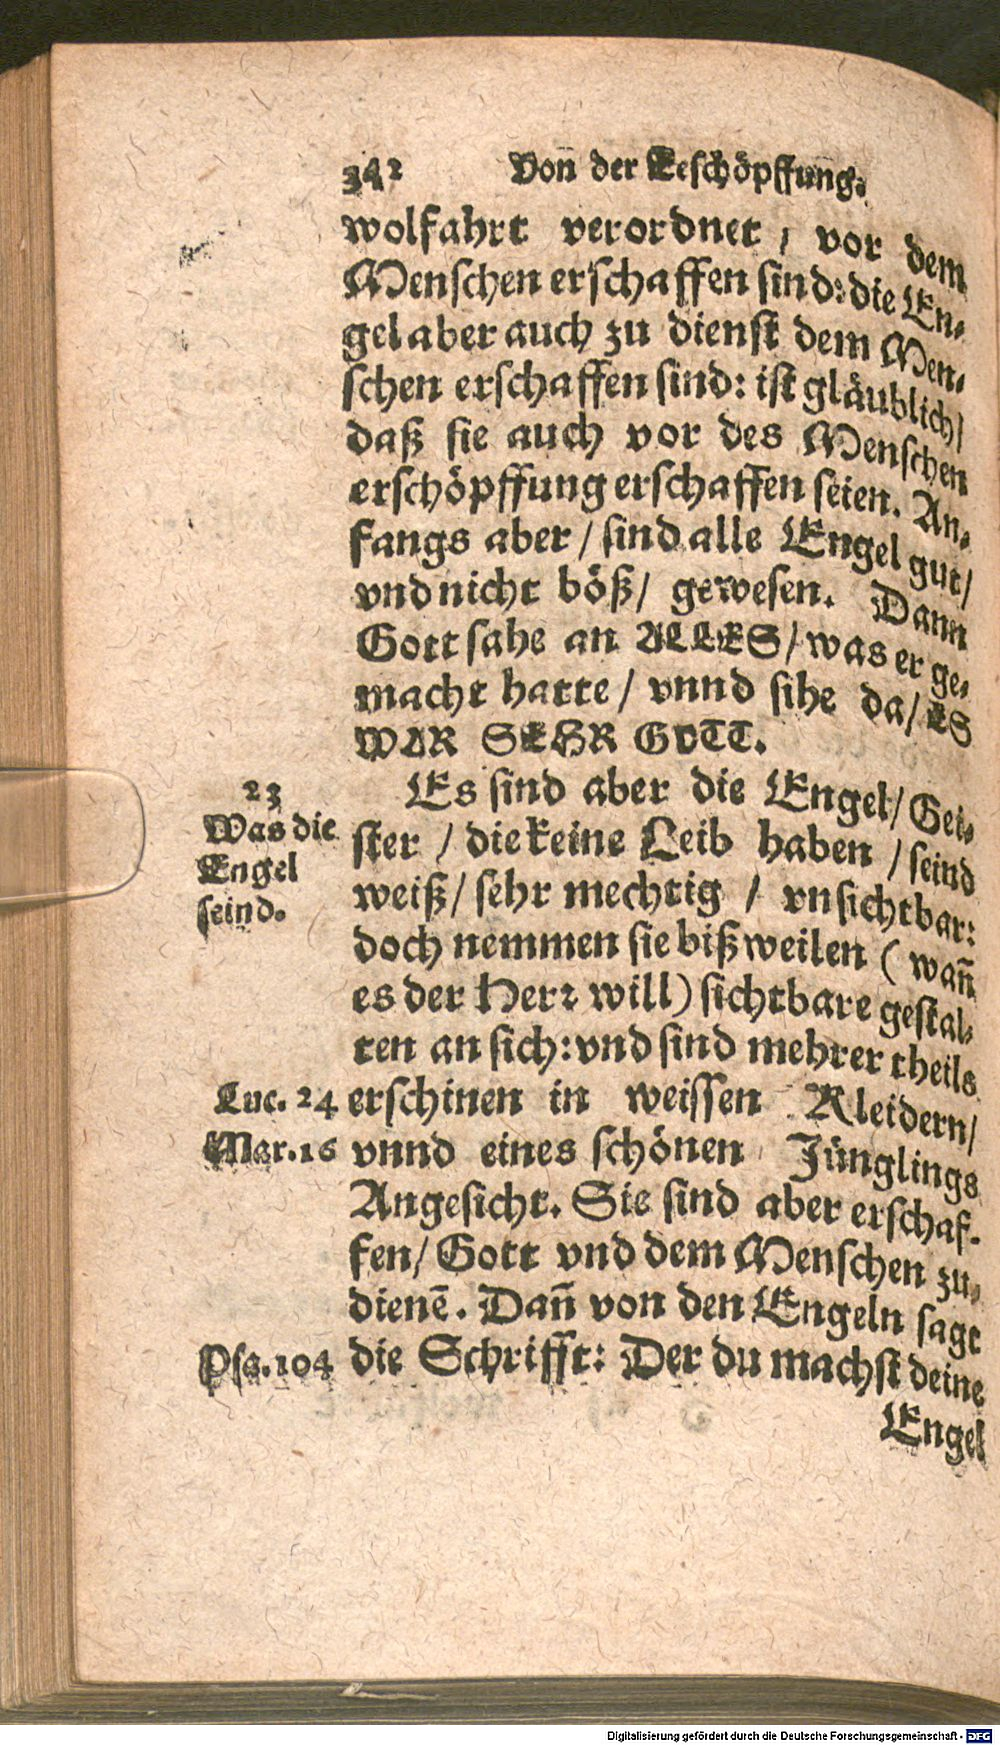 342 Von̄ der Eeschöpffung.
wolfahrt verordnet / vor dem
Menschen erschaffen sind: die En-
gel aber auch zu dienst dem Men-
schen erschaffen sind: ist gläublich/
daß sie auch vor des Menschen
erschöpffung erschaffen seien. An-
fangs aber / sind alle Engel gut/
vnd nicht böß/ gewesen. Dann
Gott sahe an ALLES/ was er ge-
macht hatte / vnnd sihe da/ ES
WAR SEHR GVTT.
23
Was die
Engel
seind.
Es sind aber die Engel/ Gei-
ster / die keine Leib haben / seind
weiß/ sehr mechtig / vnsichtbar:
doch nemmen sie bißweilen ( wan̄
es der Herr will) sichtbare gestal-
ten an sich: vnd sind mehrer theils
Luc. 24 erschinen in weissen Kleidern/
Mar. 16 vnnd eines schönen Jünglings
Angesicht. Sie sind aber erschaf-
fen/ Gott vnd dem Menschen zu-
dienē. Dan̄ von den Engeln sagt
Psa. 104 die Schrifft: Der du machst deine
Engel
Digitalisierung gefördert durch die Deutsche Forschungsgemeinschaft - DFG